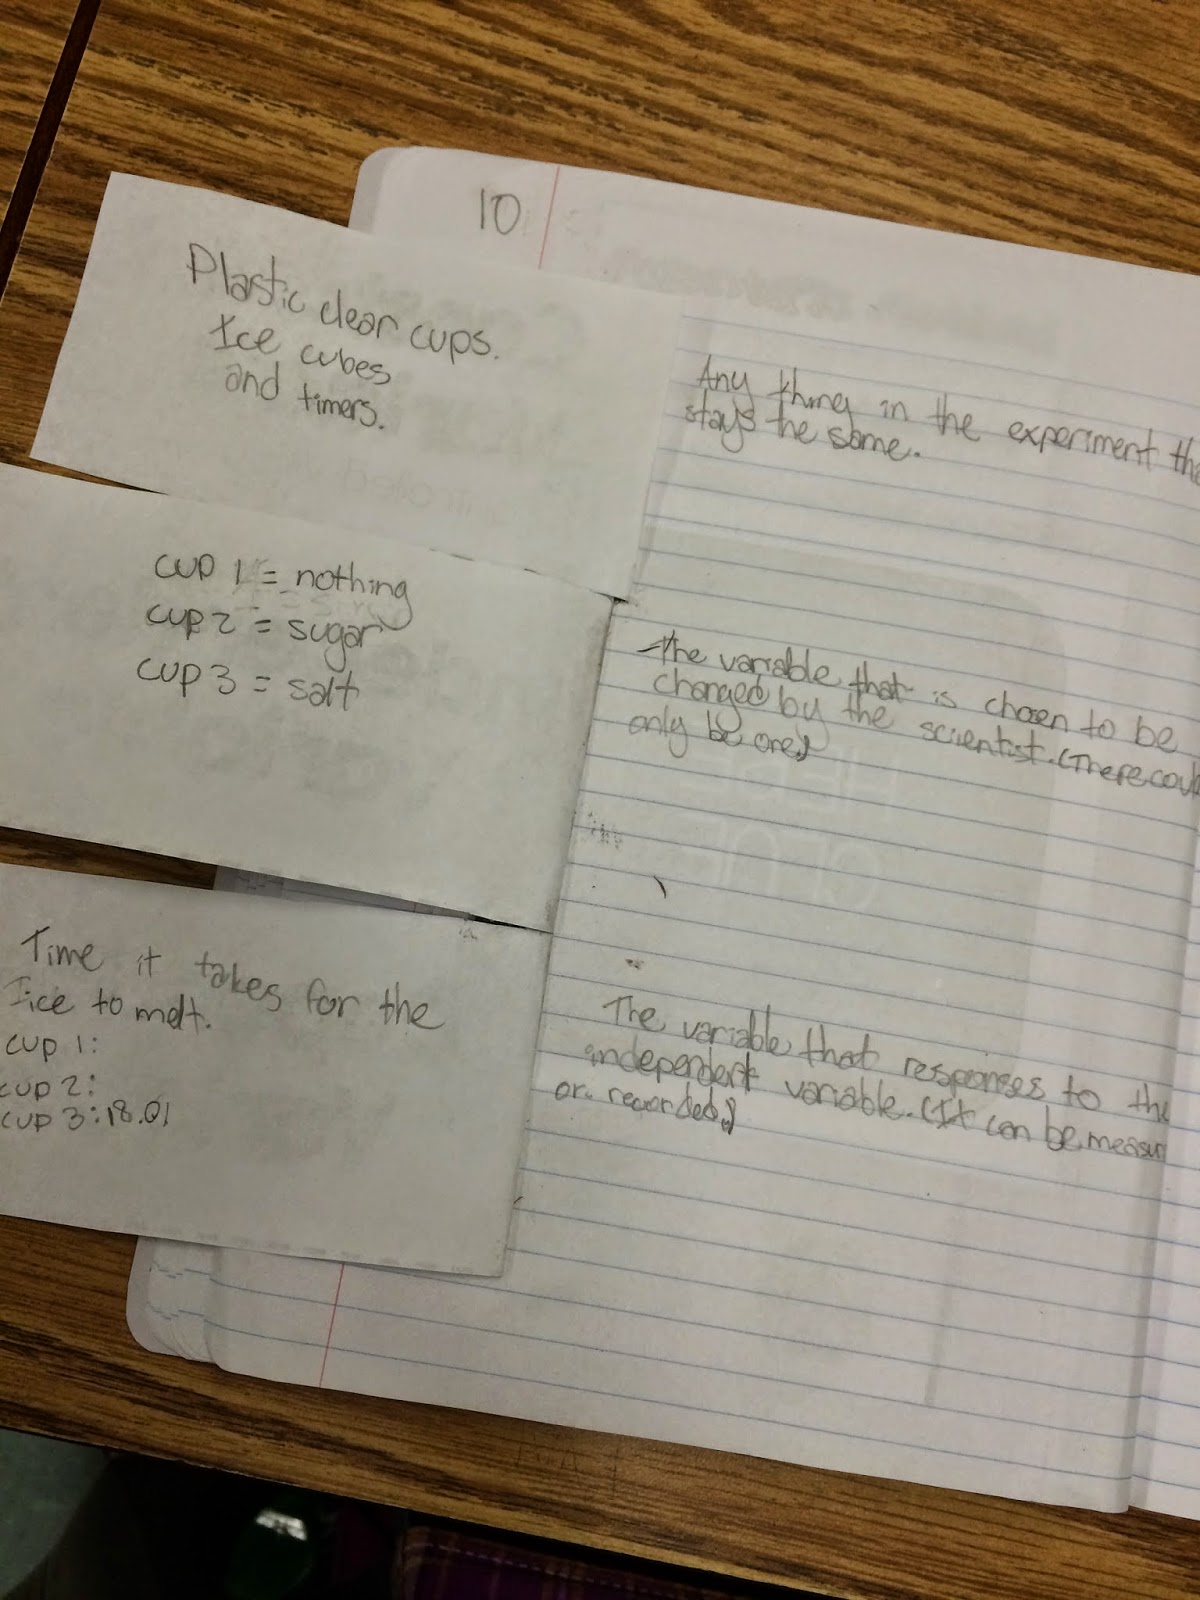 10
Plastic clear cups.
Ice cubes
and timers.
Any thing in the experiment tha
stays the same.
cup 1 = nothing
cup 2 = sugar
cup 3 = salt
The variable that is chosen to be
changed by the scientist. (There coul
only be one.)
Time it takes for the
Iice to melt.
cup 1:
cup 2:
cup 3: 18.01
The variable that responses to the
independent variable. (It can be measur
or recorded.)
HERE
GLUE